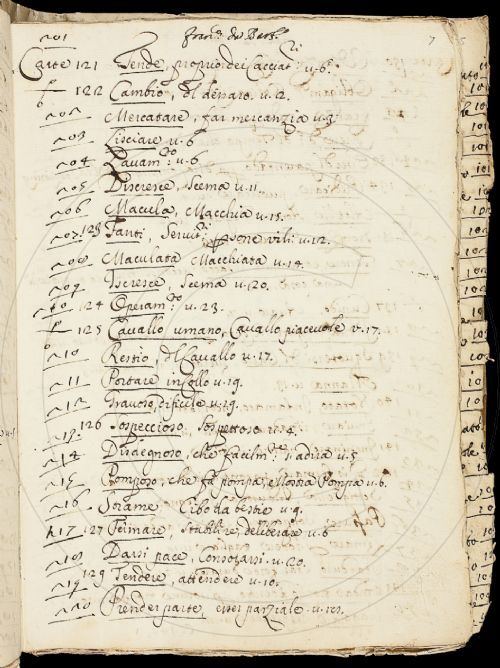 Carte 121 Tende, proprio dei Cacciat.ri v. 6.
122 Cambio, Di denaro. v. 12.
Mercatare, far mercanzia v. 3.
Lisciare v. 6
Lavam.to v. 6
05 Discresce, Scema v. 11.
06 Macula, Macchia v. 15.
07 123 Fanti, Servit.i, persone vili. v. 12.
08 Maculata Macchiata v. 14.
09 Iscresce, Scema v. 20.
124 Operam.to v. 23.
125 Cavallo umano, Cavallo piacevole v. 17.
10 Restio, Di Cavallo v. 17.
11 Portare in collo v. 19.
12 Gravoso, dificile v. 19.
126 Sospeccioso Sospettoso
14 Disdegnoso, che facilm.te s'adira v. 5.
15 Pomposo, che fà pompa, e Mostra Pompa v. 6.
16 Strame Cibo da bestie v. 9.
17 127 Fermare, Stabilire, deliberare v. 6
18 Darsi pace, Consolarsi v. 20.
19 129 Tendere, attendere v. 10.
Prender parte, esser parziale v.